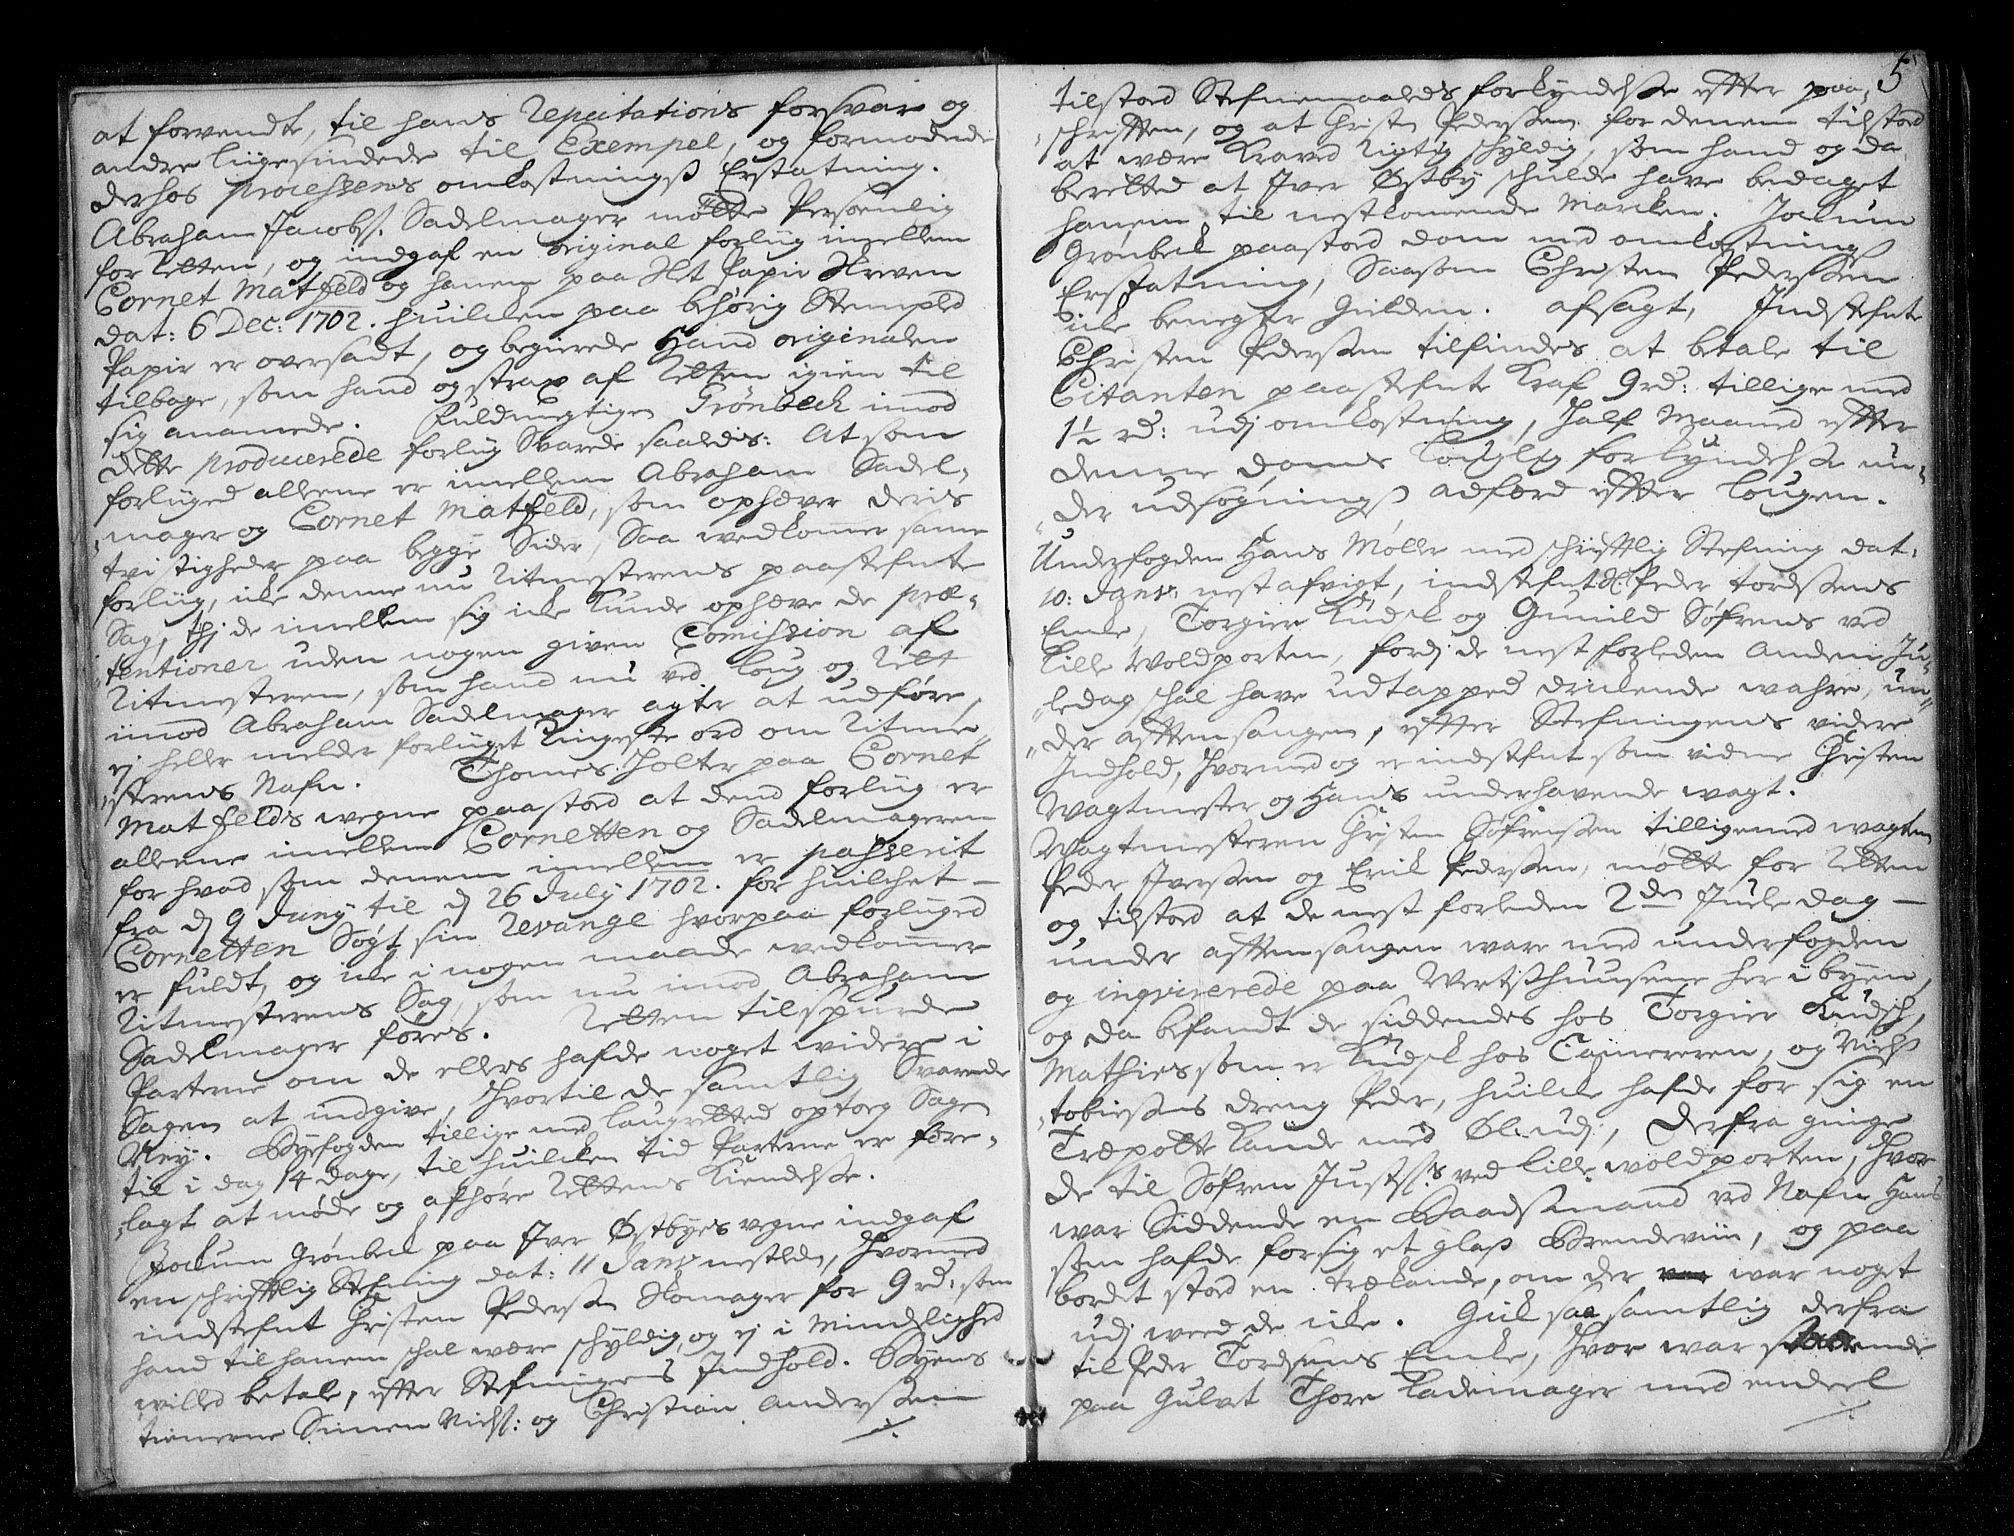 at forvendte, til hans Reputations forsvar og
andre liigesindede til Exempel, og formodede
derhos processens omkostningß Erstatning.
Abraham Jacobs. Sadelmager mötte Persohnlig
for Retten, og indgaf en original forlüg imellem
Cornet Matfeld og hanem paa Slet Papir skreven
dat: 6 Dec: 1702. huilchen paa behörig Stempled
Papir er oversadt, og begierede Hand originalen
tilbage, som hand og strax af Retten igien til
sig anamede. Fuldmegtigen Grönbech imod
dette producerede forlüg Svarede saaledis: At som
forlüged alleene er imellem Abraham Sadel-
mager og Cornet Matfeld, som ophæver deris
tvistigheder paa begge Sider, Saa wedkomer samme
forlüg, icke denne nu Ritmesterens paastefnte
Sag, thj de imellem sig icke kunde ophæve de præ-
tentioner uden nogen given Comission af
Ritmesteren, som hand nu ved loug og Rett
iimod Abraham Sadelmager agter at udföre,
ej heller melder forlüget Ringeste ord om Ritme-
sterens Nafn. Thomes Holter paa Cornet
Matfelds wegne paastod at dend forlüg er
alleene imellem Cornetten og Sadelmageren
for hvad som denem imellem er passerit
fra d 9 Juny til d 26 July 1702. for huilchet
Cornetten Sögt sin Revange hvorpaa forlüged
er fuldt, og icke i nogen maade wedkommer
Ritmesterens Sag, som nu imod Abraham
Sadelmager föres. Retten tilspurde
Parterne om de ellers hafde noget widere i
Sagen at indgive, Hvortil de samtlig Svarede
Ney. Byefogden tillige med laugretted optoeg Sagen
til i dag 14 dage, til huilchen tid Parterne er före-
lagt at möde og afhöre Rettens Kiendelse.
Jockum Grönbeck paa Iver Östbyes vegne indgaf
en schrifftlig Stefning dat: 11 Janv: nestleden, Hvormed
indstefnt Christen Pederssen Skomager for 9 rd: som
hand til hanem schal wære schyldig, og ej i Mindelighed
willed betale, effter Stefningens Indhold. Byens
tienerne Simen Niels: og Christian Anderssen
5
tilstoed Stefnemaaleds forkyndelse effter paa-
schrifften, og at Christen Pederssen for denem tilstoed
at wære Kraved Rigtig schyldig, som hand og da
beretted at Iver Östby schulde have bedaget
hanem til nestkomende Marcken. Jockum
Grönbeck paastoed dom med omkostningß
Erstatning, Saasom Christen Pederssen
icke benegter Gielden. Afsagt, Indstefnte
Christen Pederssen tilfindes at betale til
Citanten paastefnte Kraf 9 rd: tillige med
1½ rd: udj omkostning, Half Maaned effter
denne doms louglig forkyndelse un-
der udsögningß adfærd effter lougen.
Underfogden Hans Möller med schrifftlig Stefning dat:
10: Janv: nest afvigt, indstefnt Peder Tordssens
Encke, Torgier Kudsk og Gunild Söfrens ved
lille Woldporten, fordj de nest forleden Anden Ju-
ledag schal have udtapped drickende wahre, un-
der afftensangen, effter Stefningens videre
Indhold, Hvormed og er indstefnt som vidne Christen
Wagtmester og Hans underhavende wagt.
Wagtmesteren Christen Söfrenssen tilligemed wagten
Peder Iverssen og Erik Pederssen, mötte for Retten
og tilstoed at de nest forleden 2den Juele dag
under afftensangen ware med underfogden
og inqvirerede paa Wertshuusene her i byen,
og da befandt de siddendes hos Torgier Kudsch,
Mathies som er Kudsk hos Camereren, og Niels
tobiessens dreng Peder, huilche hafde for sig en
Træpotte Kande med Öl udj, Derfra ginge
de til Söfren Justs:s ved lille woldporten, Hvor
war Siddende en Baadsmand ved Nafn Hans
som hafde for sig et glaß Brendeviin, og paa
bordet stoed en trækande, om der war noget
udj weed de icke. Gick saa samtlig derfra
til Peder Tordsens Encke, Hvor war staaende
paa Gulvet Thore Lademager med endeel